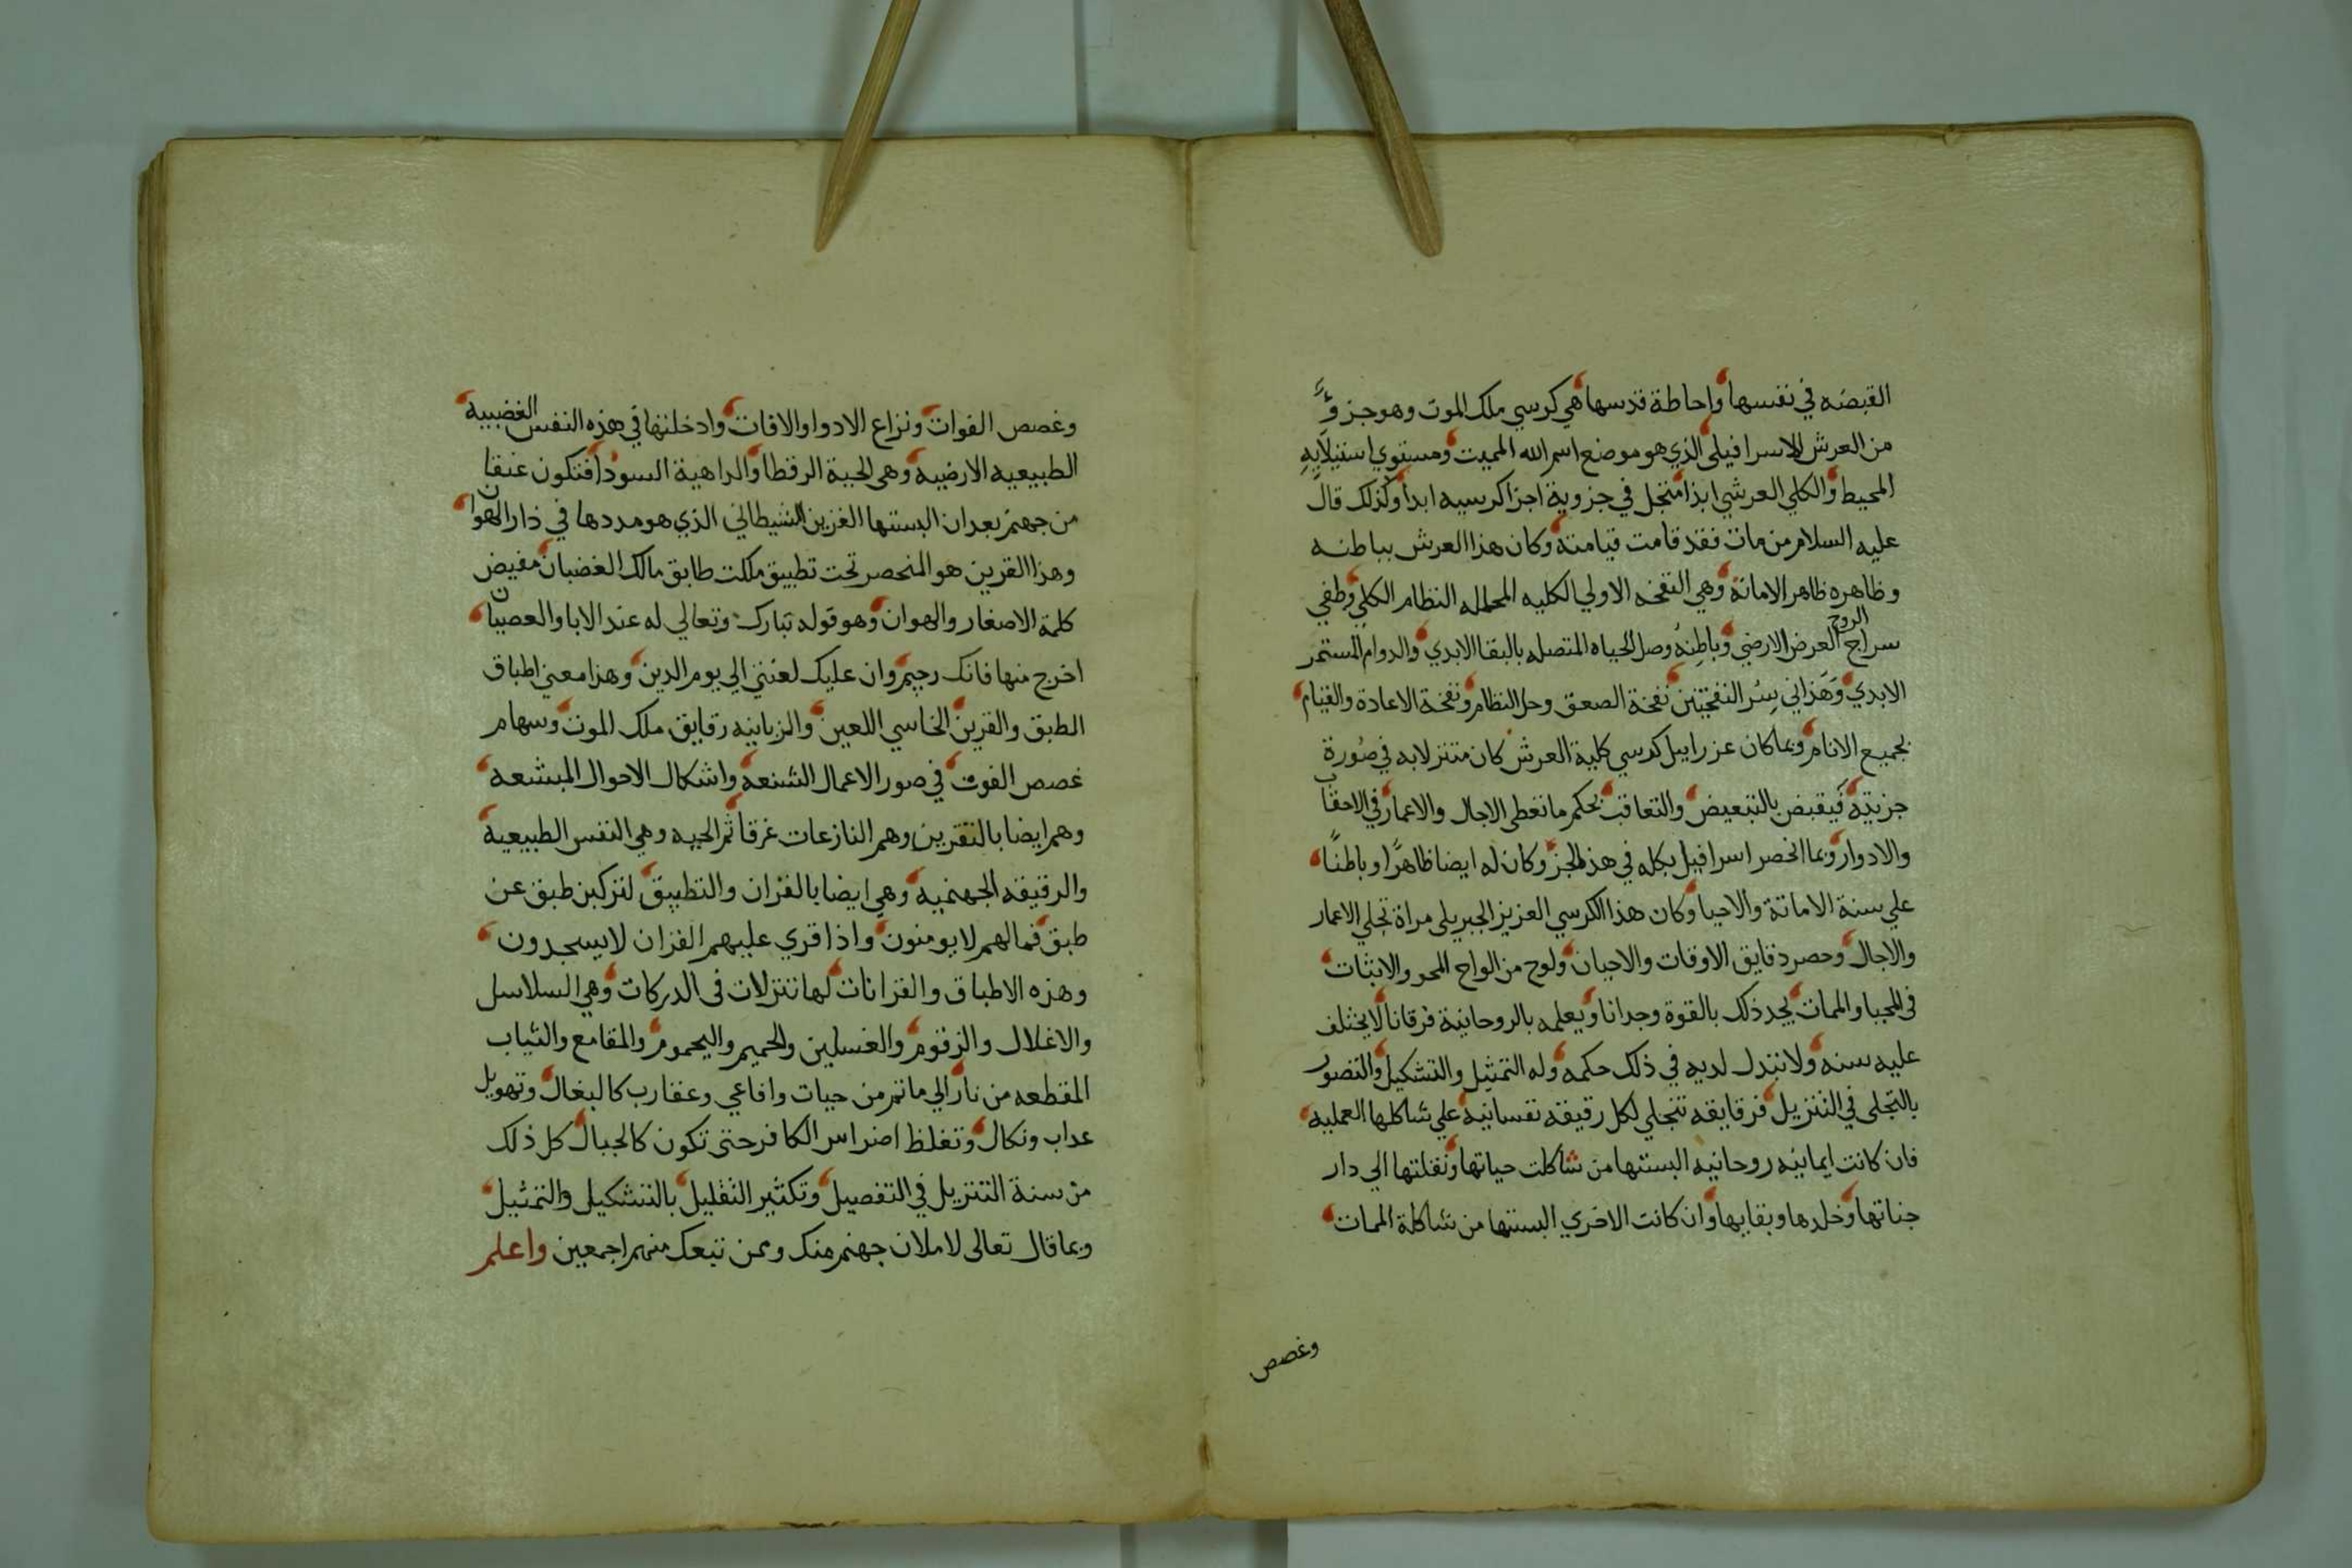 القبضه في نفسها واحاطة قدسها هي كرسي ملك الموت وهو جزؤ
من العرش الاسرافيلى الذي هو موضع اسم الله المميت ومستوي استيلايه
المحيط والكلي العرشي ابدا متجل في جزوية اجزا كرسيه ابدا وكذلك قال
عليه السلام من مات فقد قامت قيامته وكان هذا العرش بباطنه
وظاهره ظاهر الاماتة وهي النفخه الاولي الكليه المحلله النظام الكلي وطفي
سراج الروح العرض الارضي وباطنه وصل الحياه المتصله بالبقا الابدي والدوام المستمر
الابدي وهذاني سر النفختين نفخة الصعق وحل النظام ونفخة الاعادة والقيام
بجميع الانام وبما كان عزراييل كرسي كلية العرش كان متنزلا به في صورة
جزيته فيقبض بالتبعيض والتعاقب بحكم ما تعطى الاجال والاعمار في الاحقاب
والادوار وبما انحصر اسرافيل بكله في هذا الجز وكان له ايضا ظاهرا وباطنا
علي سنة الاماتة والاحيا وكان هذا الكرسي العزيز الجبريلى مراة تجلي الاعمار
والاجال وحصر دقايق الاوقات والاحيان ولوح من الواح المحو والاثبات
فى المحيا والممات يجد ذلك بالقوة وجدانا ويعلمه بالروحانية فرقانا لا يختلف
عليه سنه ولا تتبدل لديه في ذلك حكمه وله التمثيل والتشكيل والتصور
بالتجلى في التنزيل فرقايقه تتجلي لكل رقيقه نفسانيه علي شاكلها العمليه
فان كانت ايمانيه روحانيه البستها من شاكلت حياتها ونقلتها الي دار
جناتها وخلدها وبقايها وان كانت الاخري البستها من شاكلة الممات
وغصص
وغصص الفوات ونزاع الادوا والافات وادخلتها في هذه النفس الغضبيه
الطبيعيه الارضيه وهى الحية الرقطا والداهية السودا فتكون عنقا
من جهنم بعد ان البستها القرين الشيطاني الذي هو مددها في دار الهوان
وهذا القرين هو المنحصر تحت تطبيق ملكت طابق مالك الغضبان مفيض
كلمة الاصغار والهوان وهو قوله تبارك وتعالي له عند الابا والعصيان
اخرج منها فانك رجيم وان عليك لعنتي الي يوم الدين وهذا معني اطباق
الطبق والقرين الخاسي اللعين والزبانيه رقايق ملك الموت وسهام
غصص الفوت في صور الاعمال الشنعه واشكال الاحوال المبشعه
وهم ايضا بالتقرين وهم النازعات غرقا ثم الحيه وهي النفس الطبيعية
والرقيقه الجهنميه وهي ايضا بالقران والتطبيق لتركبن طبق عن
طبق فما لهم لا يومنون واذا قري عليهم القران لا يسجدون
وهذه الاطباق والقرانات لها تنزلات فى الدركات وهي السلاسل
والاغلال والزقوم والغسلين والحميم واليحموم والمقامع والثياب
المقطعه من نار الي ما ثم من حيات وافاعي وعقارب كالبغال وتهويل
عداب ونكال وتغلظ اضراس الكافر حتى تكون كالجبال كل ذلك
من سنة التنزيل في التفصيل وتكثير التقليل بالتشكيل والتمثيل
وبما قال تعالى لاملان جهنم منك وممن تبعك منهم اجمعين واعلم